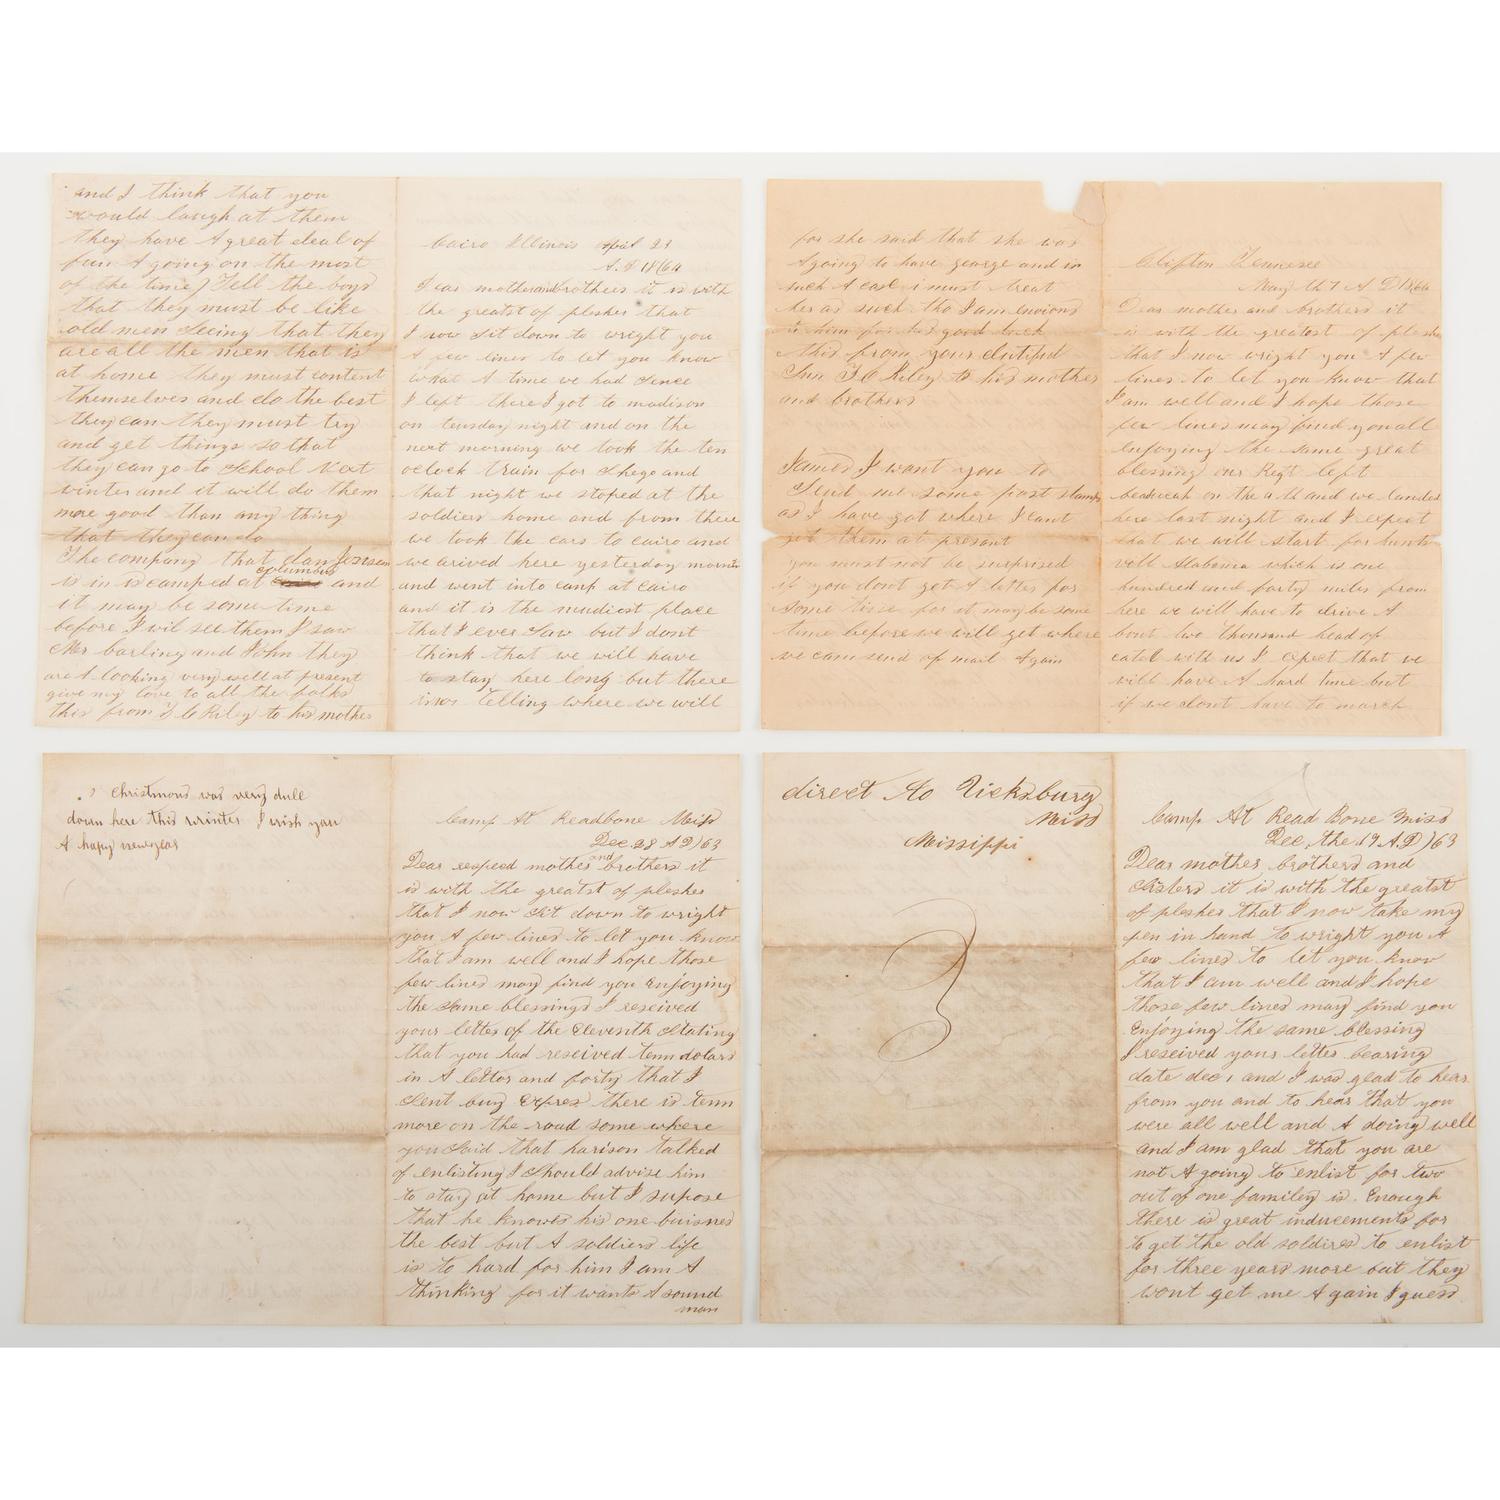 and I think that you
would laugh at them
they have A great deal of
fun A going on the most
of the time Tell the boys
that they must be like
old men seeing that they
are all the men that is
at home they must content
themselves and do the best
they can they must try
and get things so that
they can go to School Next
winter and it will do them
more good than any thing
that they can do
The company that dan
columbus
is in is camped at and
it may be some time
before I wil see them I saw
and John they
are A looking very well at present
give my love to all the folks
this from Riley to his mother
Cairo Illinois april 21
A. D 1864
Dear mother and brothers it is with
the greatst of plesher that
I now sit down to wright you
A few lines to let you know
what A time we had sence
I left there I got to madison
on teusday night and on the
next morning we took the ten
oclock train for and
that night we stoped at the
soldiers home and from there
we took the cars to cairo and
we arived here yesterday
and went into camp at cairo
and it is the mudiest place
that I ever saw but I dont
think that we will have
to stay here long but there
is no telling where we will
for she said that she was
Agoing to have george and in
such A case i must treat
her as such tho I am envious
for his good luck
this from your dutiful
Sun Riley to his mother
and brothers
James I want you to
Send me some post stamps
as I have got where I cant
get them at present
you must not be surprised
if you dont get A letter for
some time for it may be some
time before we will get where
we cam send of mail Again
Clifton Tennesee
May th 7 A D 1864
Dear mother and brothers it
is with the greatest of plesher
that I now wright you A few
lines to let you know that
I am well and I hope those
few lines may find you all
enjoying the same great
blessing our Regt left
on the 4 th and we landed
here last night and I expect
that we will start for hunts
vill Alabama which is one
hundred and forty miles from
here we will have to drive A
bout two thousand head of
catel with us I expect that we
will have A hard time but
if we dont have to march
Christmous was very dull
down here this winter I wish you
A hapy newyear
Camp At Readbone Miss
Dec 28 A D /63
and
Dear respeed mother brothers it
is with the greatst of plesher
that I now sit down to wright
you A few lines to let you know
that I am well and I hope those
few lines may find you Enjoying
the same blessings I received
your letter of the Eleventh stating
that you had received tenn dolars
in A letter and forty that I
sent buy Expres there is tenn
more on the road some where
you said that harison talked
of enlisting I should advise him
to stay at home but I supose
that he knows his one buisnes
the best but A soldiers life
is to hard for him I am A
thinking for it wants A sound
man
direct to Vicksburg
Miss
Mississippi
Camp At Read Bone Miss
Dec, the 19 A. D /63
Dear mother, brothers and
sisters it is with the greatst
of plesher that I now take my
pen in hand to wright you A
few lines to let you know
that I am well and I hope
those few lines may find you
Enjoying the same blessing
I received your letter bearing
date dec 1 and I was glad to hear
from you and to hear that you
were all well and A doing well
and I am glad that you are
not A going to enlist for two
out of one familey is Enough
there is great inducements for
to get the old soldires to enlist
for three years more but they
wont get me A gain I guess